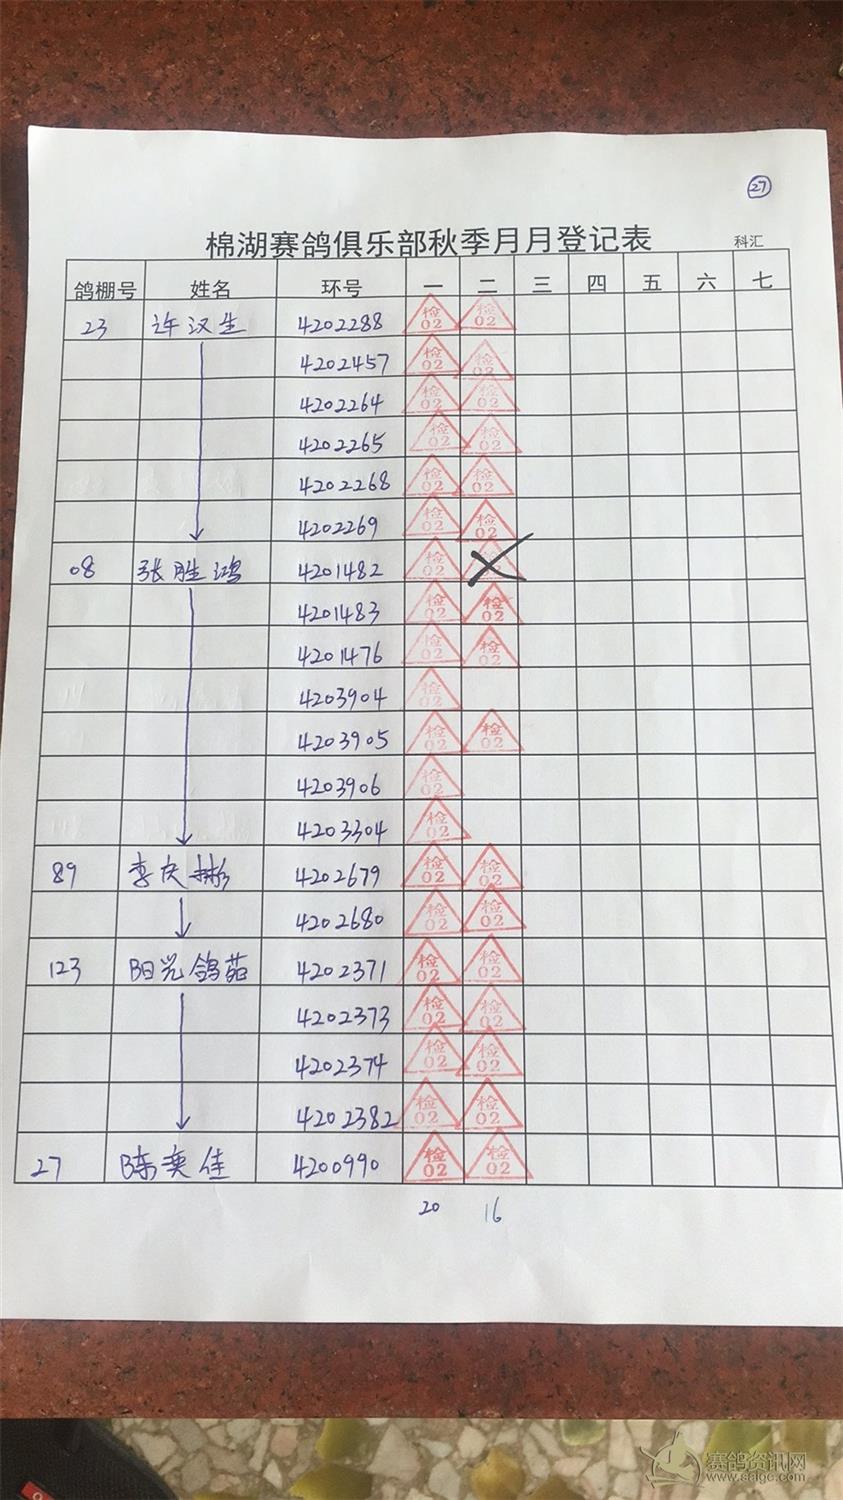 27
棉湖赛鸽俱乐部秋季月月登记表 科汇
鸽棚号 姓名 环号 一 二 三 四 五 六 七
23 许汉生 4202288 检02 检02
4202457 检02 检02
4202264 检02 检02
4202265 检02 检02
4202268 检02 检02
4202269 检02 检02
08 张胜鸿 4201482 检02
4201483 检02 检02
4201476 检02 检02
4203904 检02
4203905 检02 检02
4203906 检02
4203304 检02
89 李庆彬 4202679 检02 检02
4202680 检02 检02
123 阳光鸽苑 4202371 检02 检02
4202373 检02 检02
4202374 检02 检02
4202382 检02 检02
27 陈奕佳 4200990 检02 检02
20 16
赛鸽资讯网
www.saige.com